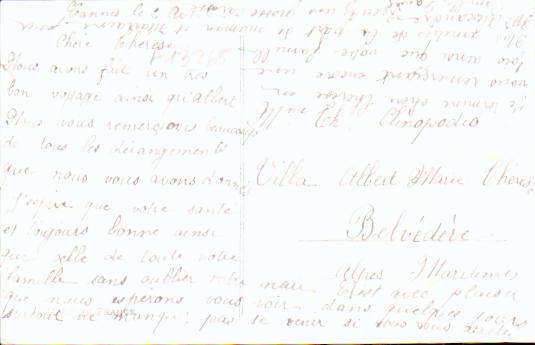 Cannes le 2
Chère Thérèse
Nous avons fait un très
bon voyage ainsi qu'Albert
Nous vous remercions beaucoup
de tous les dérangements
que nous vous avons donné
J'espère que votre santé
est toujours bonne ainsi
que celle de toute votre
famille sans oublier votre mari C'est avec plaisir
que nous esperons vous voir dans quelques jours
surtout ne manquez pas de venir si vous vous
Mme Th. Clinopodio
Villa Albert Marie Thérèse
Belvédère
Alpes Maritimes
vous remerciant encore une
fois ainsi que votre famille